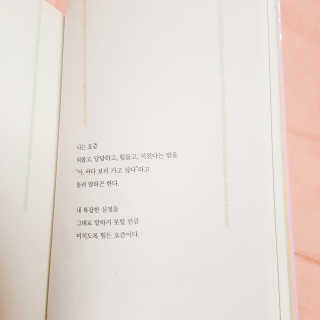 나는 요즘
외롭고, 답답하고, 힘들고, 지친다는 말을
"아, 바다 보러 가고 싶다"라고
돌려 말하곤 한다.
내 복잡한 심정을
그대로 말하지 못할 만큼
벅차도록 힘든 요즘이다.